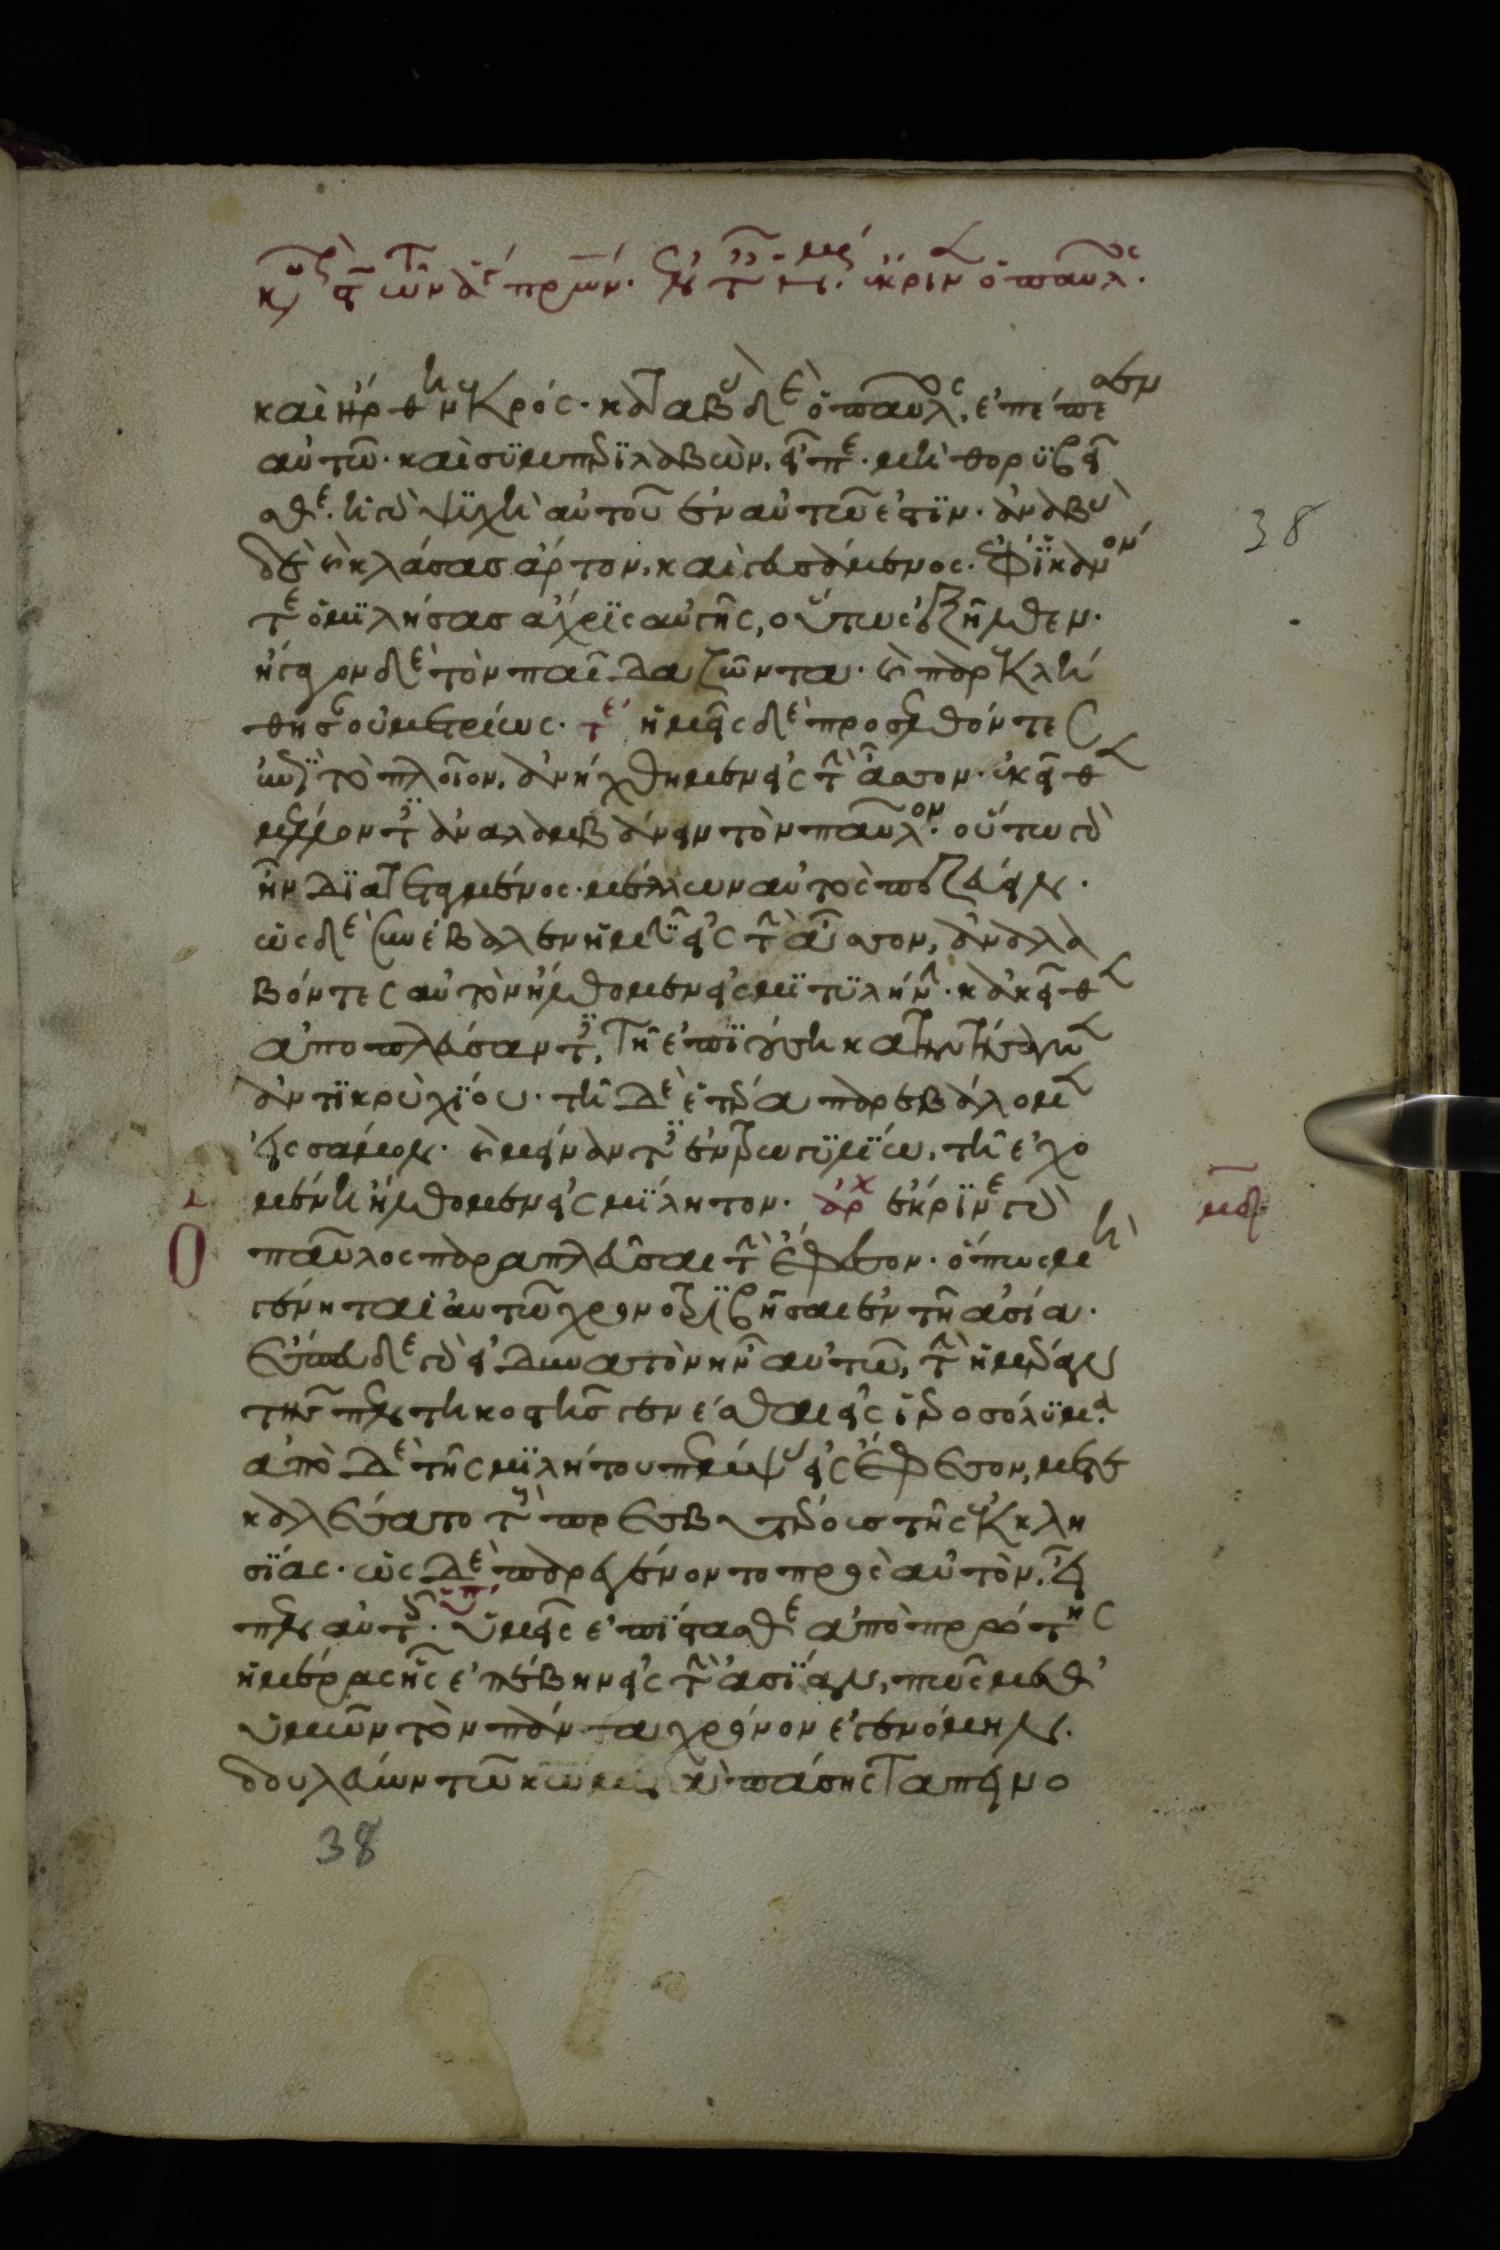 καὶ ἤρθη νεκρός· καταβὰς δὲ ὁ παῦλος, ἐπέπεσεν
αὐτῶ· καὶ συμπεριλαβὼν, εἶπε· μὴ θορυβεῖ
σθε· ἡ γὰρ ψυχὴ αὐτοῦ ἐν αὐτῶ ἐστιν· ἀναβὰς
δὲ καὶ κλάσας ἄρτον, καὶ γευσάμενος· ἐφ ἱκανόν
τε ὁμιλήσας ἄχρις αὐγῆς, οὕτως ἐξῆλθεν·
ἤγαγον δὲ τὸν παῖδα ζῶντα· καὶ παρεκλή
θησαν οὐ μετρίως· τε ἡμεῖς δὲ προσελθόντες
ἐπὶ τὸ πλοῖον, ἀνήχθημεν εἰς τὴν ἄσσον· ἐκεῖθεν
μέλλοντες ἀναλαμβάνειν τὸν παῦλον· οὕτω γὰρ
ἦν διατεταγμένος· μέλλων αὐτὸς πεζεύειν·
ὡς δὲ συνέβαλεν ἡμῖν εἰς τὴν ἄσσον, ἀναλα
βόντες αὐτὸν ἤλθομεν εἰς μιτυλήνην· κἀκεῖθεν
ἀποπλεύσαντες, τῆ ἐπιούση κατηντήσαμεν
ἀντικρὺ χίου· τῆ δὲ ἑτέρα παρεβάλομεν
εἰς σάμον· καὶ μείναντες ἐν τρωγυλίω, τῆ ἐχο
μένη ἤλθομεν εἰς μίλητον· ἀρχ ἔκρινε γὰρ
μδ
παῦλος παραπλεῦσαι τὴν ἔφεσον· ὅπως μὴ
γένηται αὐτῶ χρονοτριβῆσαι ἐν τῆ ἀσία·
ἔσπευδε γὰρ εἰ δυνατὸν ἦν αὐτῶ, τὴν ἡμέραν
τῆς πεντηκοστῆς γενέσθαι εἰς ἱεροσόλυμα·
ἀπὸ δὲ τῆς μιλήτου πέμψας εἰς ἔφεσον, μετε
καλέσατο τοὺς πρεσβυτέρους τῆς ἐκκλη
σίας· ὡς δὲ παρεγένοντο πρὸς αὐτὸν, εἶ
πεν αὐτοῖς· ὑμεῖς ἐπίστασθε ἀπὸ πρώτης
ἡμέρας ἧς ἐπέβην εἰς τὴν ἀσίαν, πῶς μεθ
ὑμῶν τὸν πάντα χρόνον ἐγενόμην·
δουλεύων τῶ κυρίω μετὰ πάσης ταπεινο
38
38